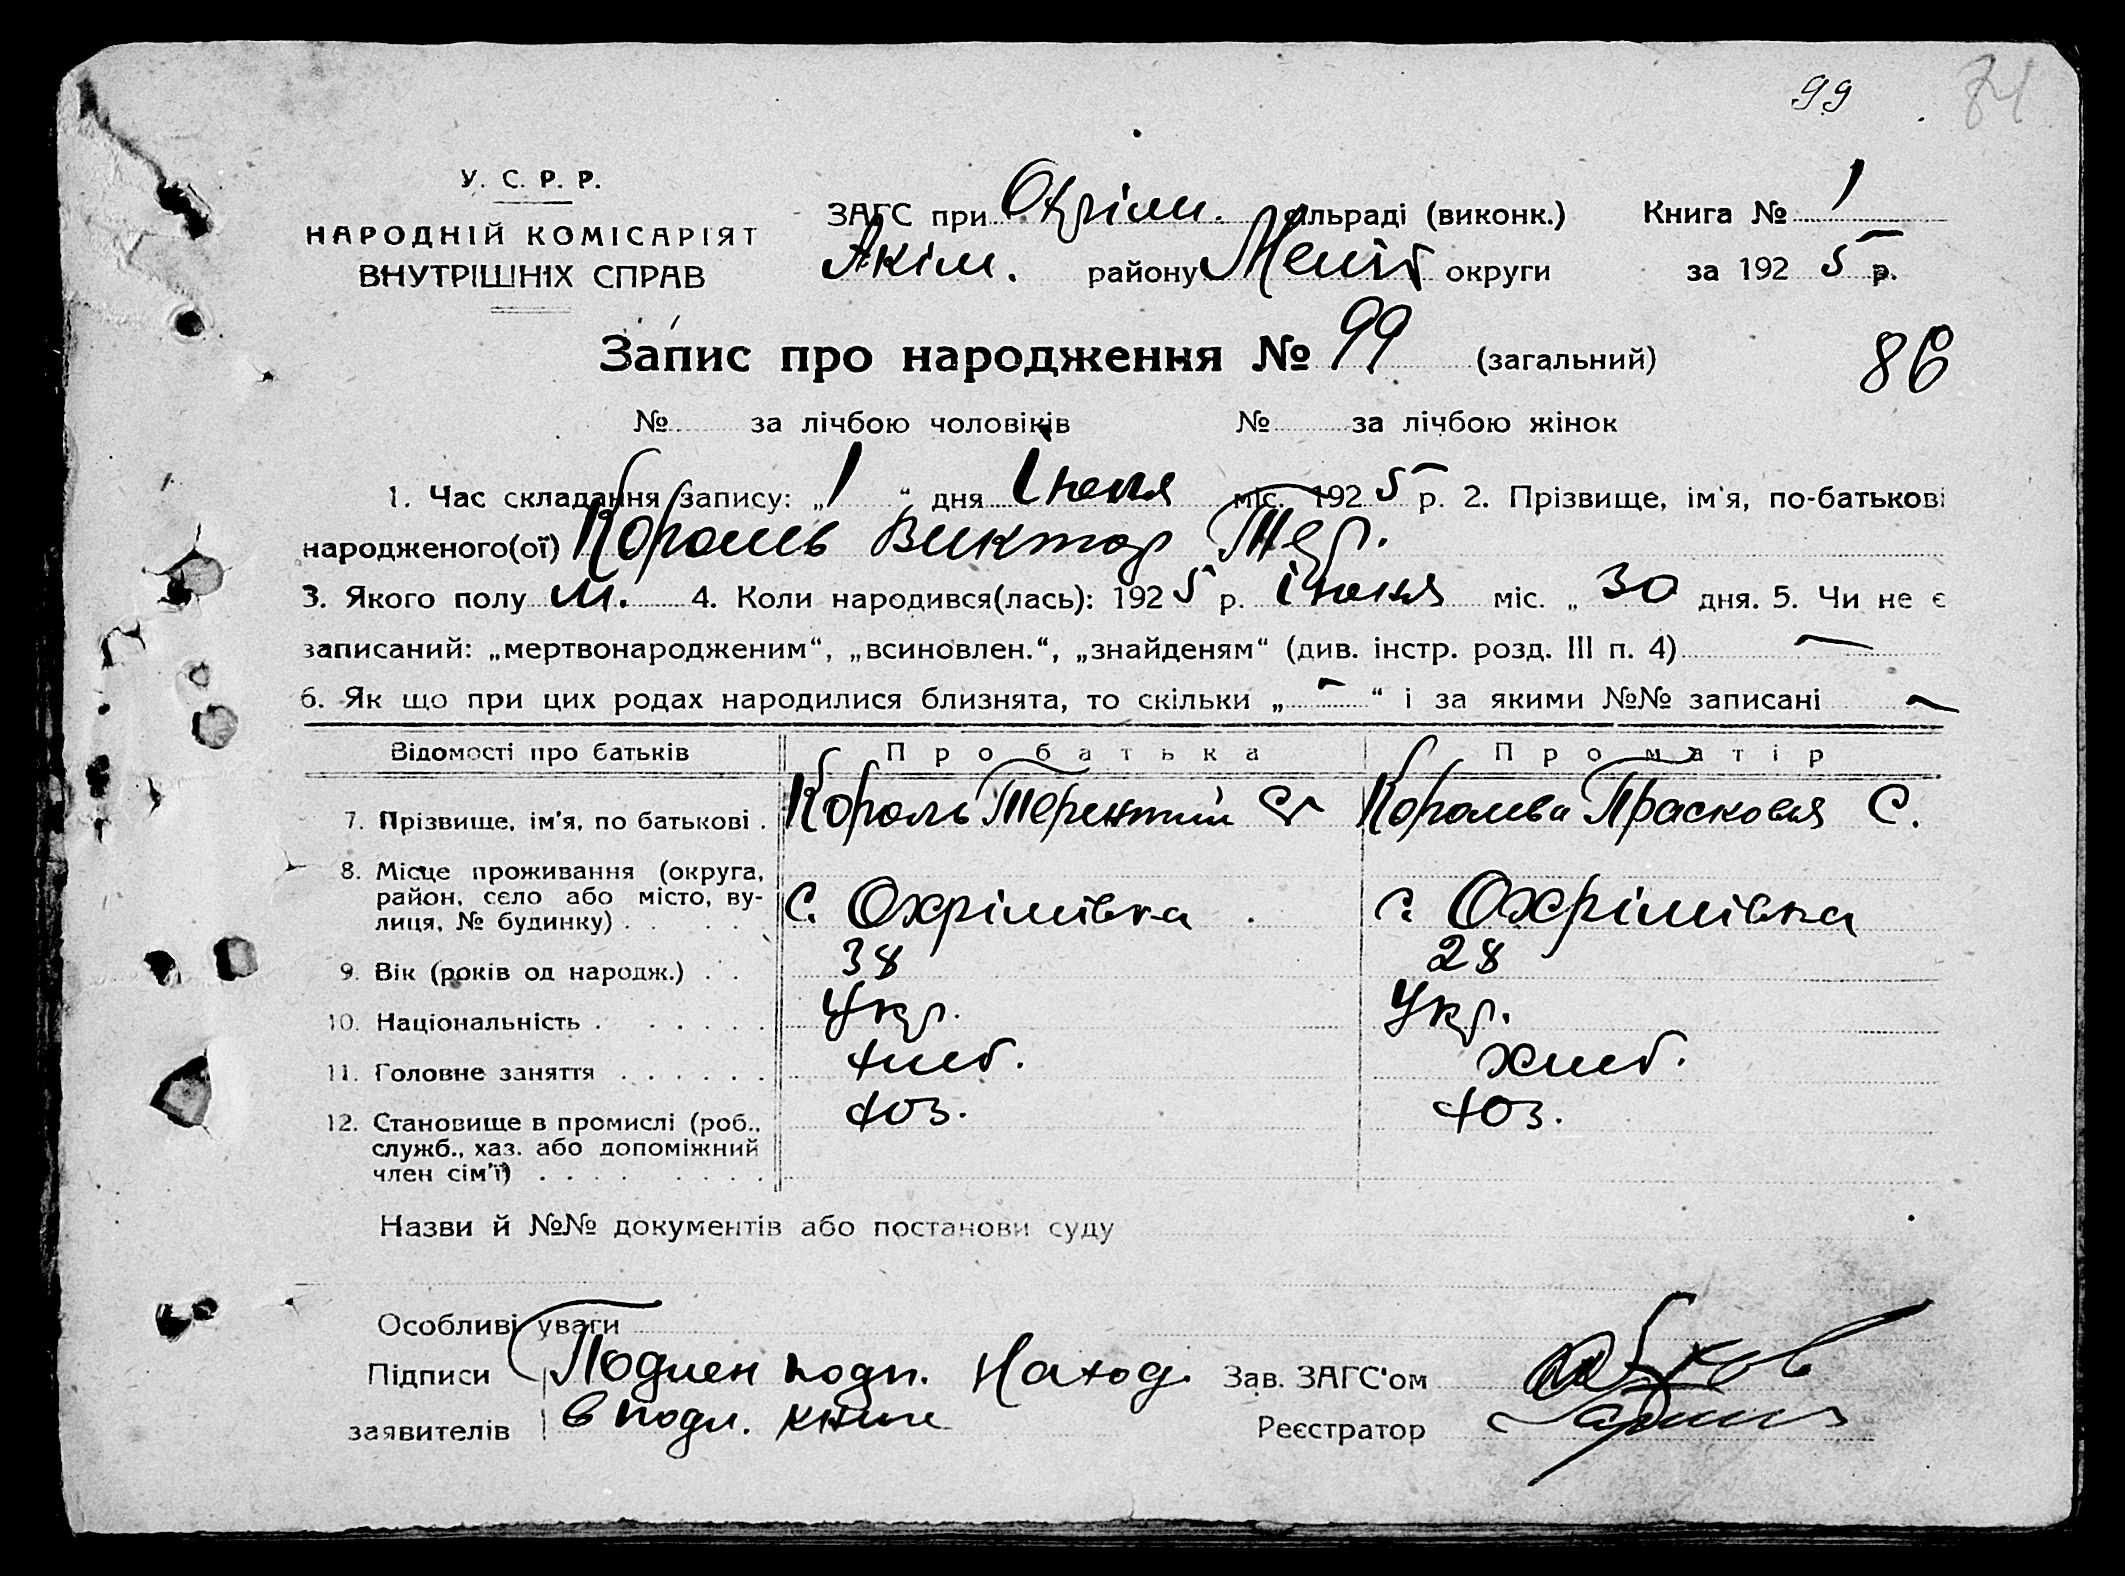 99 84
У. С. Р. Р.
НАРОДНІЙ КОМІСАРІЯТ
ВНУТРІШНІХ СПРАВ
ЗАГС при Охрім. сільраді (виконк.) Книга № 1
Акім. району Меліт округи за 192 5 р.
Запис про народження № 99 (загальний)
86
№ за лічбою чоловіків № за лічбою жінок
1. Час складання запису: „ 1 “ дня Июля міс. 192 5 р. 2. Прізвище, ім'я, по-батькові
народженого(ої) Король Виктор Тер.
3. Якого полу м. 4. Коли народився(лась): 192 5 р. міс. „ 30 дня. 5. Чи не є
записаний: „мертвонародженим“, „всиновлен.“, „знайденям“ (див. інстр. розд. III п. 4) —
6. Як що при цих родах народилися близнята, то скільки „ — “ і за якими №№ записані —
Відомості про батьків Про батька Про матір
7. Прізвище, ім'я, по батькові . Король Терентий Королева Прасковея С.
8. Місце проживання (округа,
район, село або місто, ву-
лиця, № будинку) . . . . с. Охрімівка с. Охрімівка
9. Вік (років од народж.) . . 38 28
10. Національність . . . . . . Укр. Укр.
11. Головне заняття . . . . . . хліб. хліб.
12. Становище в промислі (роб.,
служб., хаз. або допоміжний
член сім'ї) . . . . . . . . хоз. хоз.
Назви й №№ документів або постанови суду
Особливі уваги
Підписи Подлен подп. наход. Зав. ЗАГС'ом
заявителів в подл. книге Реєстратор